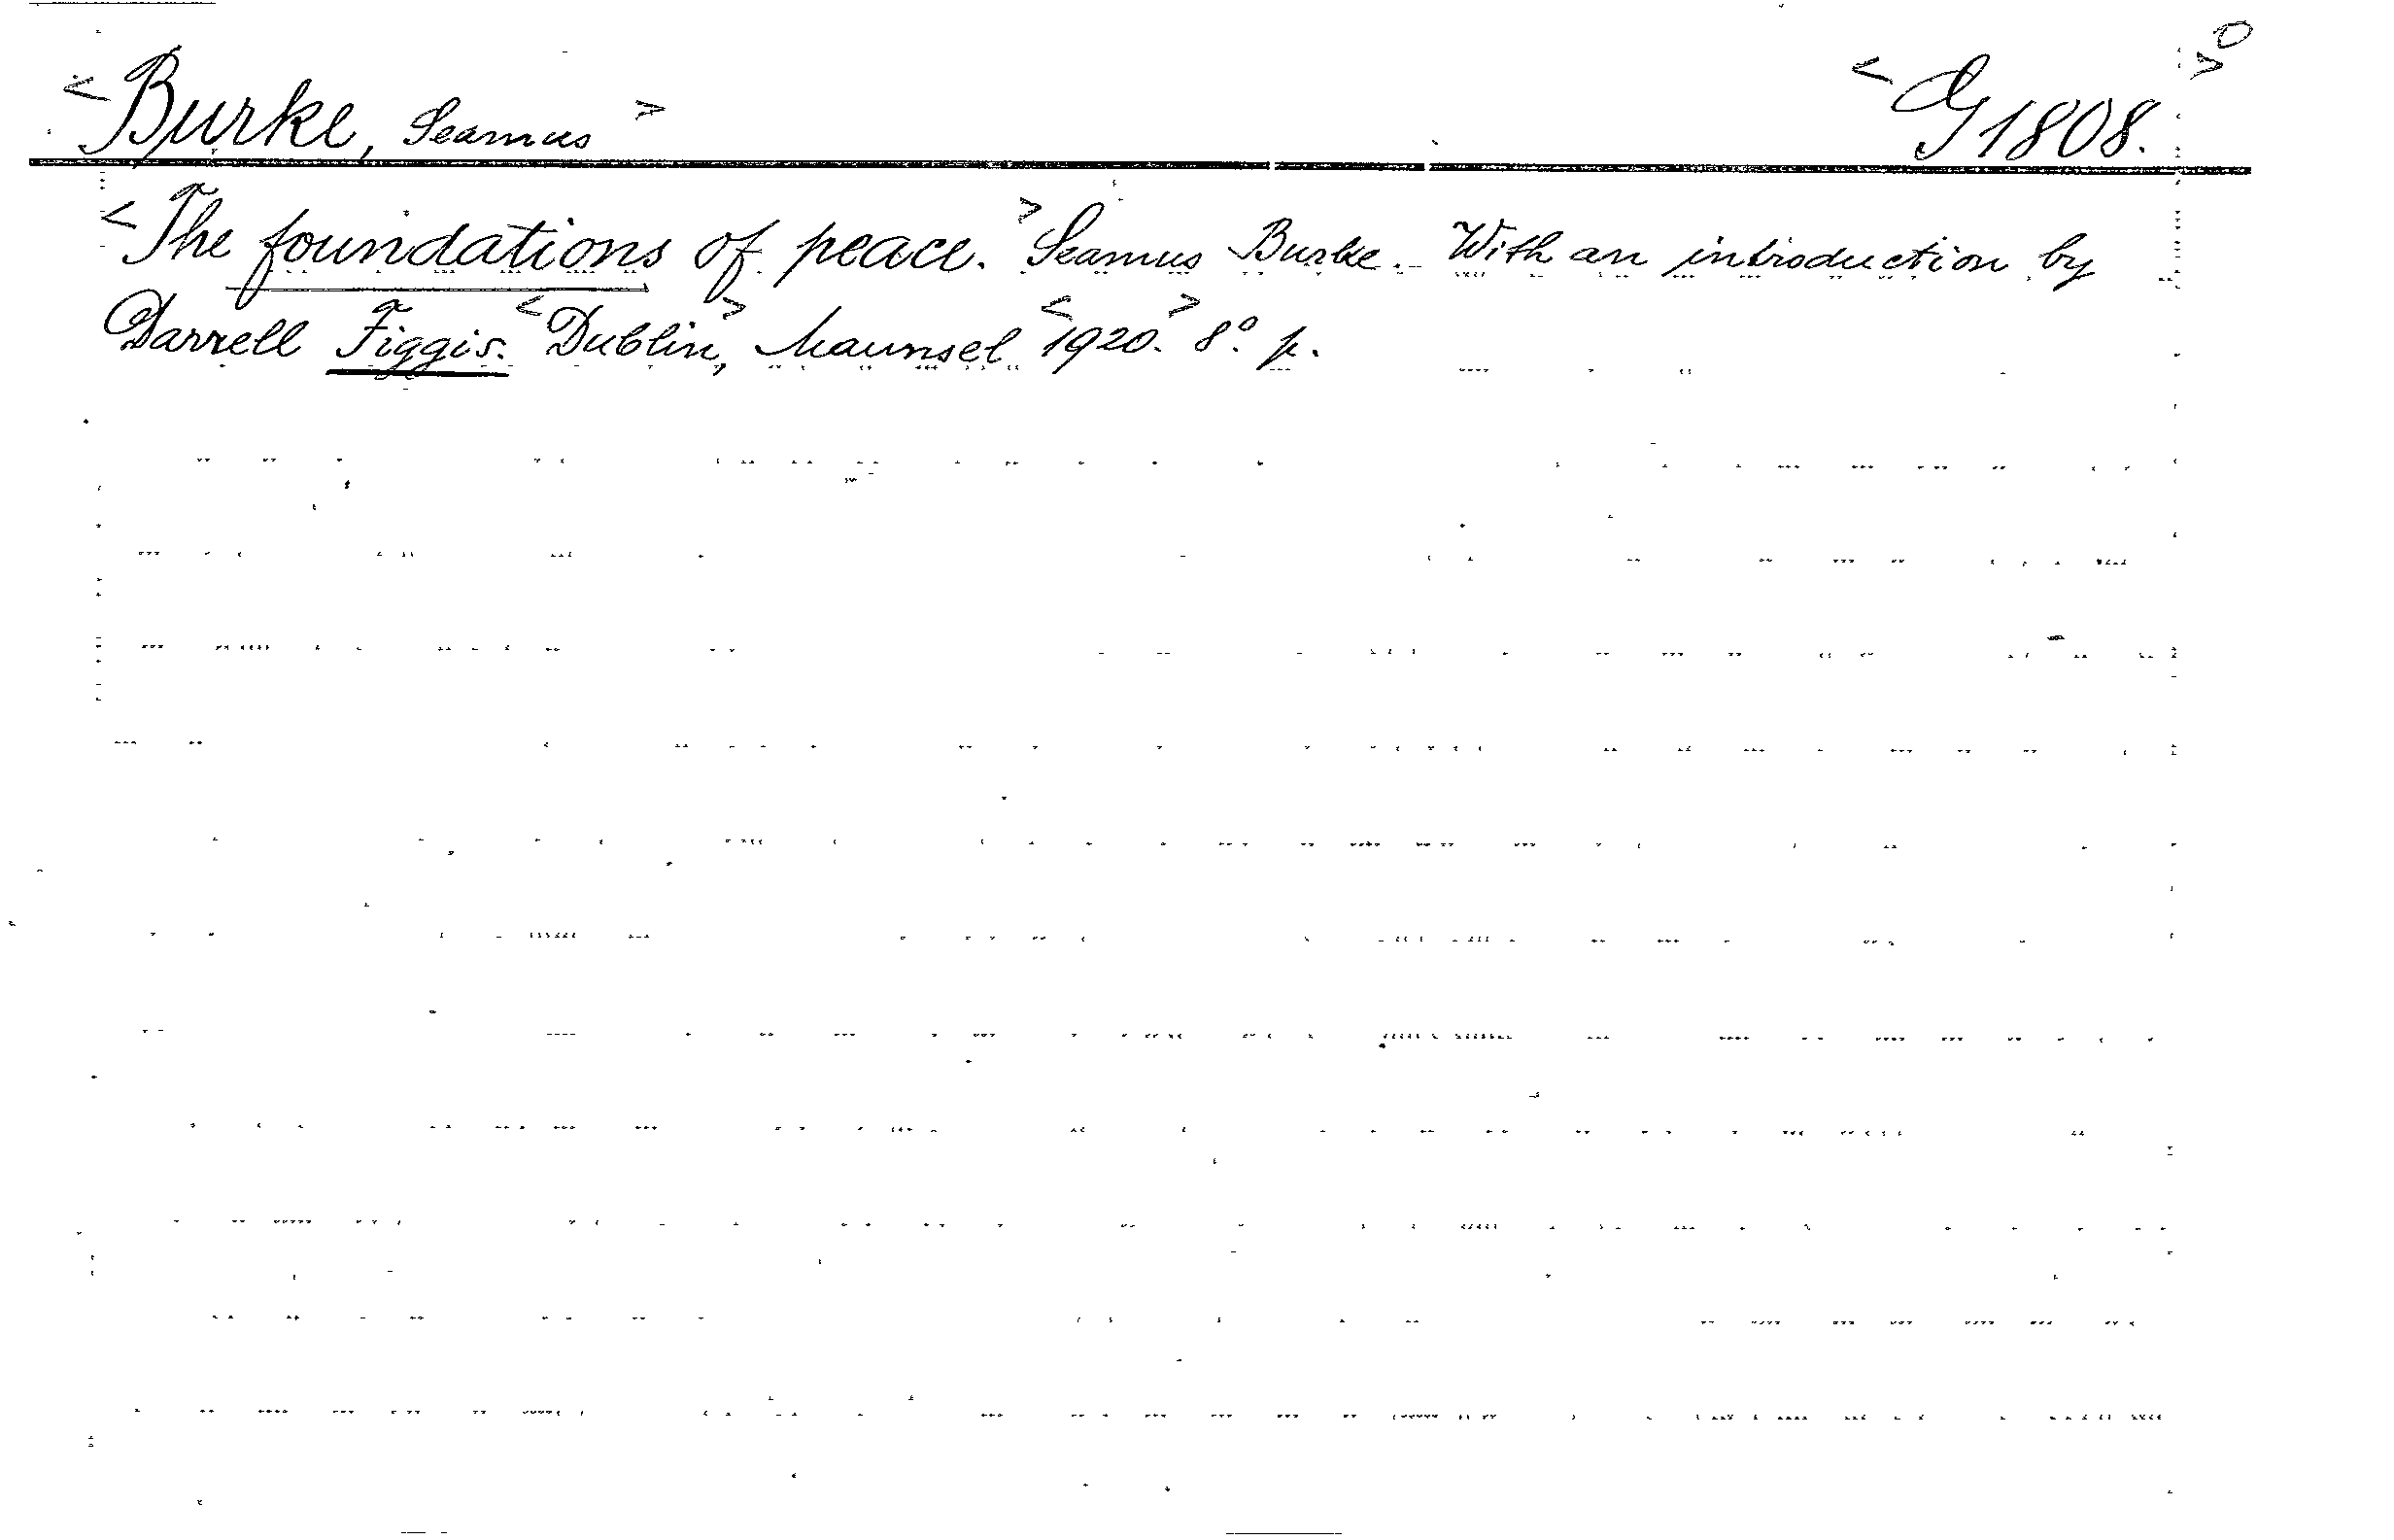 <Burke, Seamus> <G 1808.>0
<The foundations of peace.> Seamus Burke. With an introduction by
Darrell Figgis. <Dublin,> Maunsel <1920.> 8º. p.